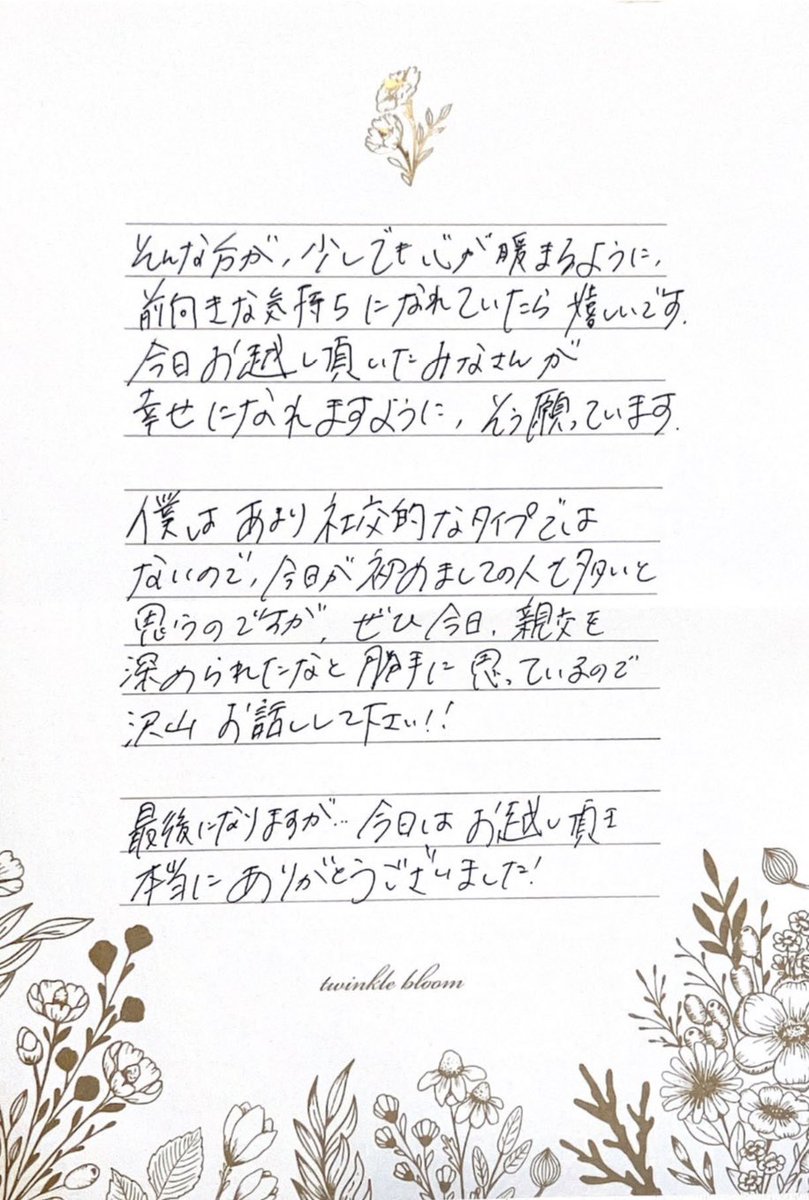 そんな方が、少しでも心が暖まるように、
前向きな気持ちになれていたら嬉しいです。
今日お越し頂いたみなさんが
幸せになれますように、そう願っています。
僕はあまり社交的なタイプでは
ないので、今日が初めましての人も多いと
思うのですが、ぜひ今日、親交を
深められたなと勝手に思っているので
沢山お話しして下さい!!
最後になりますが…今日はお越し頂き
本当にありがとうございました!
twinkle bloom